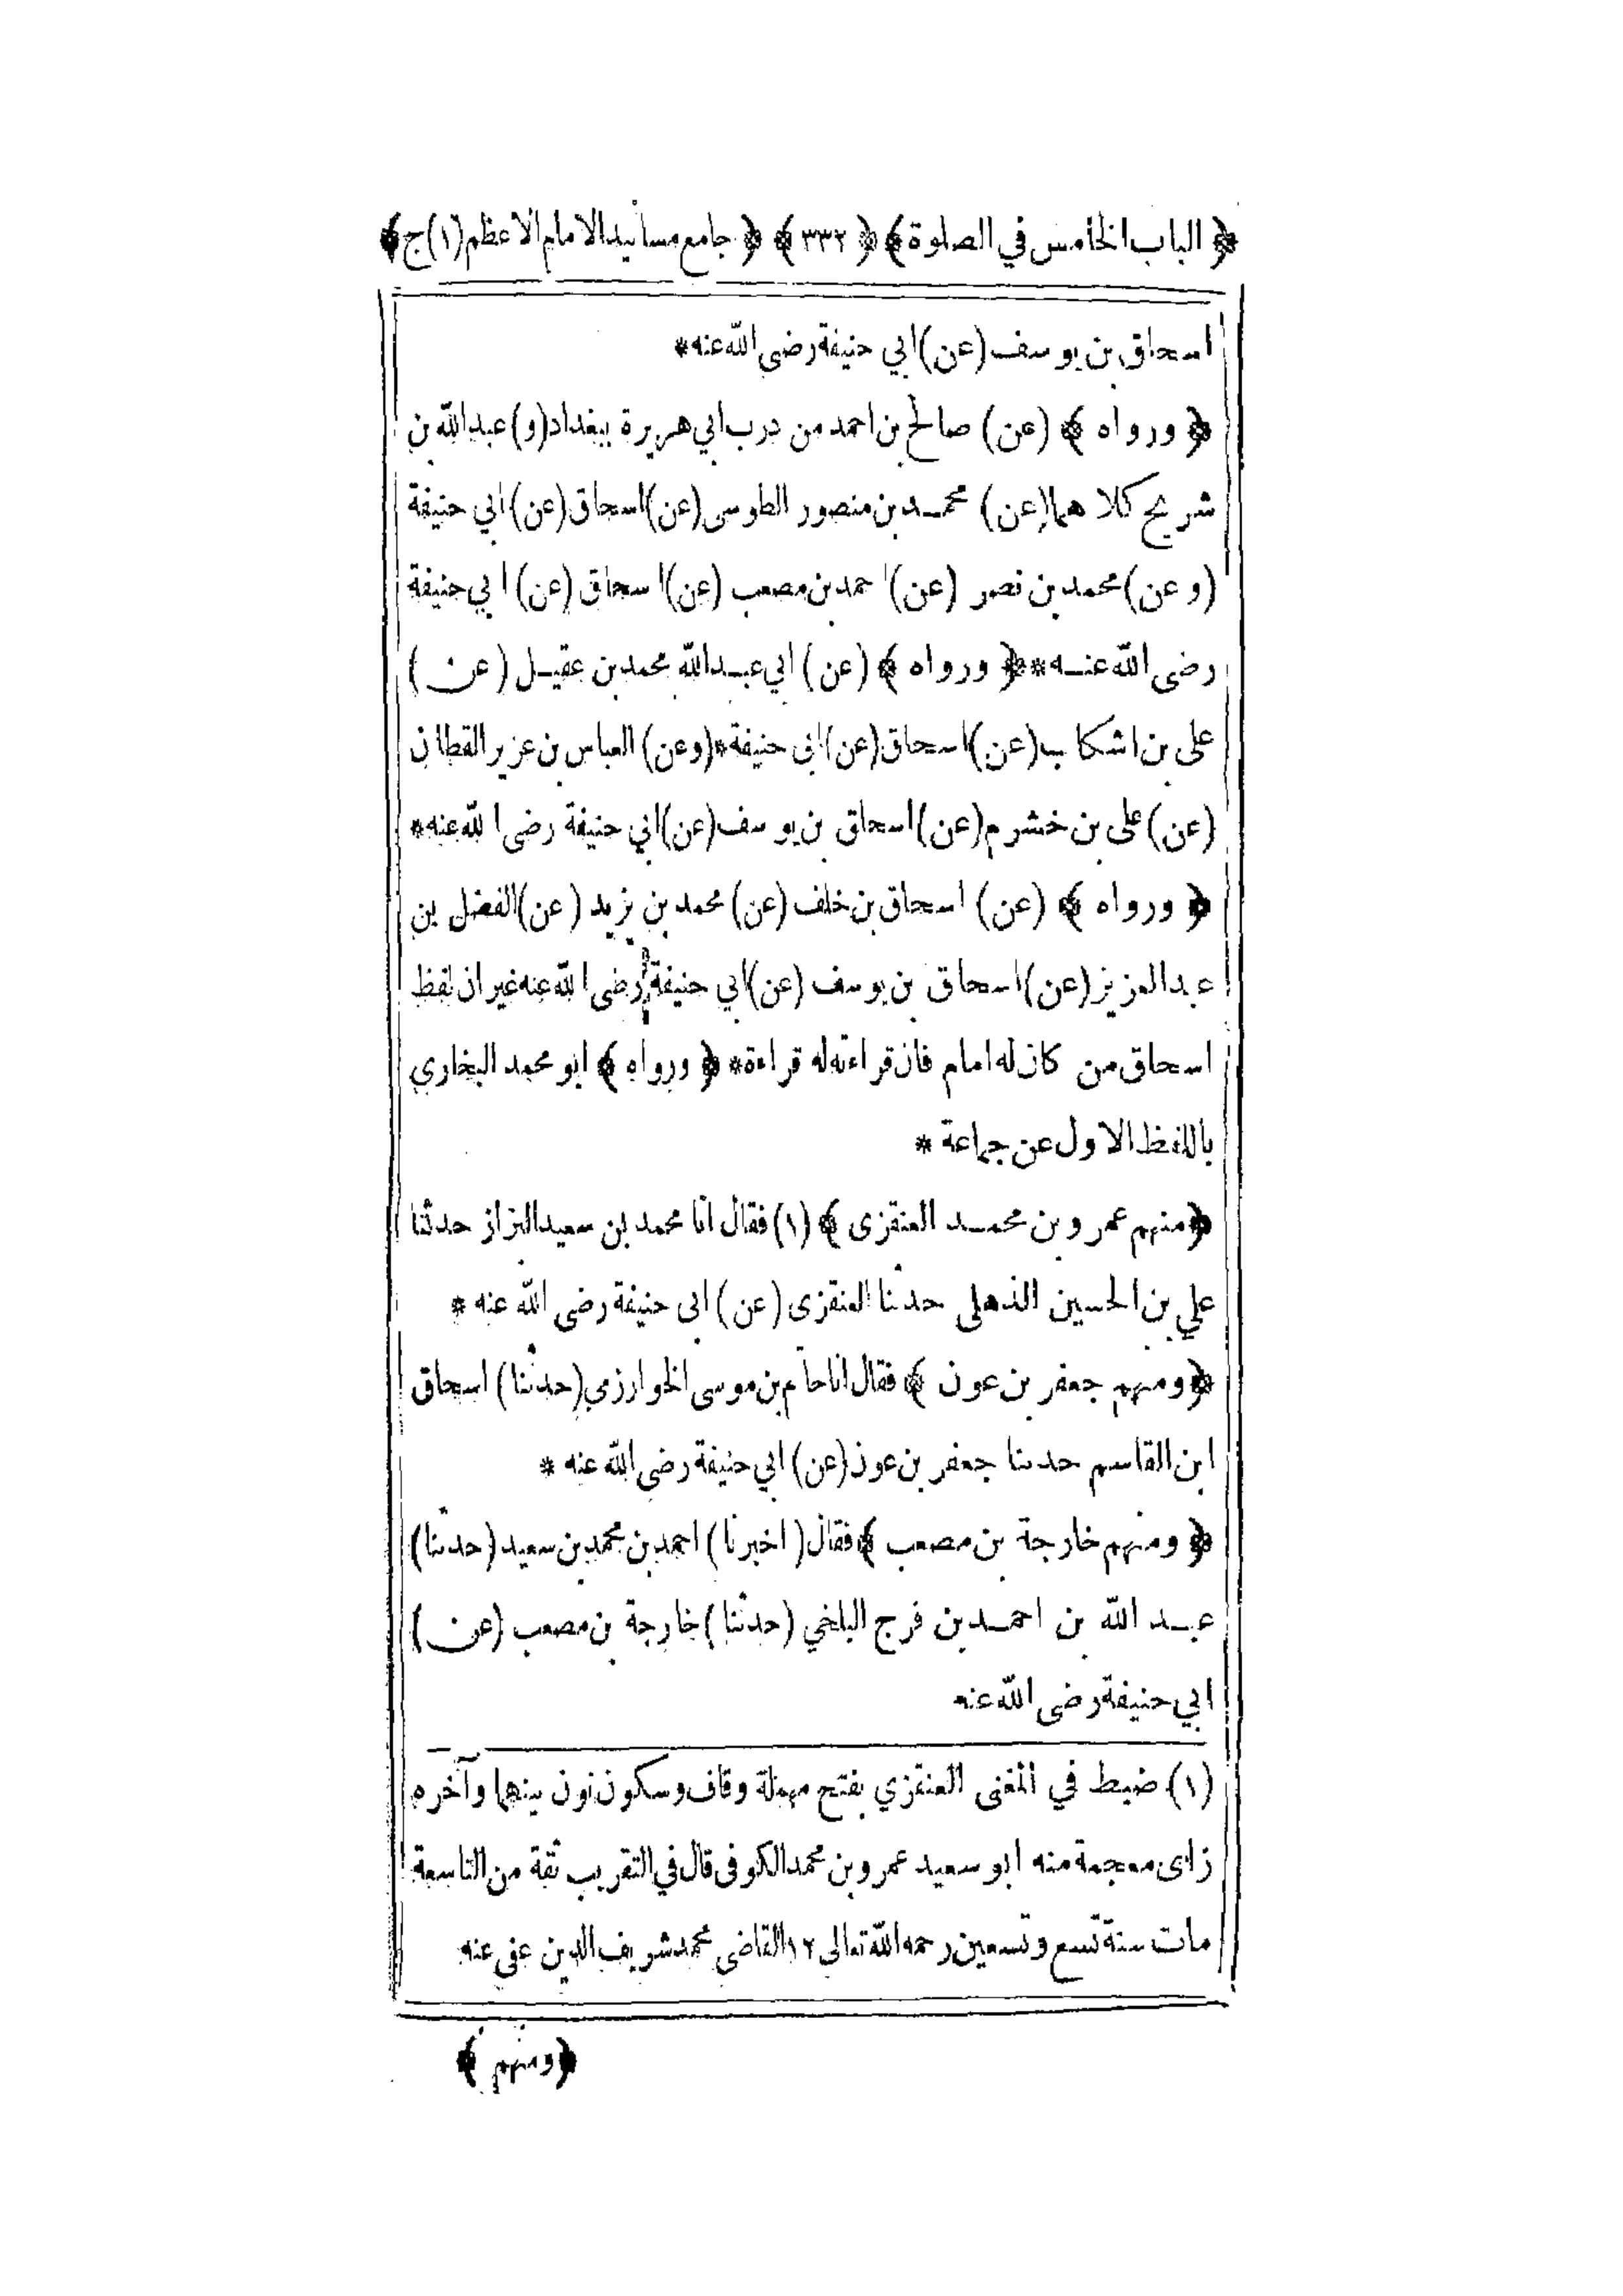 ﴿ الباب الخامس في الصلوة ﴾ ﴿ ٣٣٢ ﴾ ﴿ جامع مسانيد الامام الاعظم (١) ج ﴾
اسحاق بن يوسف (عن) ابي حنيفة رضى الله عنه *
﴿ ورواه ﴾ (عن) صالح بن احمد من درب ابي هريرة ببغداد (و) عبد الله بن
شريح كلاهما (عن) محمد بن منصور الطوسى (عن) اسحاق (عن) ابي حنيفة
(وعن) محمد بن نصر (عن) احمد بن مصعب (عن) اسحاق (عن) ابي حنيفة
رضى الله عنه * ﴿ ورواه ﴾ (عن) ابي عبد الله محمد بن عقيل (عن)
على بن اشكاب (عن) اسحاق (عن) ابي حنيفة * (وعن) العباس بن عزير القطان
(عن) على بن خشرم (عن) اسحاق بن يوسف (عن) ابي حنيفة رضى الله عنه *
﴿ ورواه ﴾ (عن) اسحاق بن خلف (عن) محمد بن يزيد (عن) الفضل بن
عبد العزيز (عن) اسحاق بن يوسف (عن) ابي حنيفة رضى الله عنه غير ان لفظ
اسحاق من كان له امام فان قراءته له قراءة * ﴿ ورواه ﴾ ابو محمد البخاري
باللفظ الاول عن جماعة *
﴿ منهم عمرو بن محمد العنقزى ﴾ (١) فقال انا محمد بن سعيد البزاز حدثنا
علي بن الحسين الذهلى حدثنا العنقزى (عن) ابى حنيفة رضى الله عنه *
﴿ ومنهم جعفر بن عون ﴾ فقال انا حاتم بن موسى الخوارزمي (حدثنا) اسحاق
ابن القاسم حدثنا جعفر بن عون (عن) ابي حنيفة رضى الله عنه *
﴿ ومنهم خارجة بن مصعب ﴾ فقال (اخبرنا) احمد بن محمد بن سعيد (حدثنا)
عبد الله بن احمد بن فرج البلخي (حدثنا) خارجة بن مصعب (عن)
ابي حنيفة رضى الله عنه
(١) ضبط في المغنى العنقزي بفتح مهملة وقاف وسكون نون بينهما وآخره
زاى معجمة منه ابو سعيد عمرو بن محمد الكوفى قال في التقريب ثقة من التاسعة
مات سنة تسع وتسعين رحمه الله تعالى ١٢ القاضى محمد شريف الدين عفى عنه
﴿ ومنهم ﴾